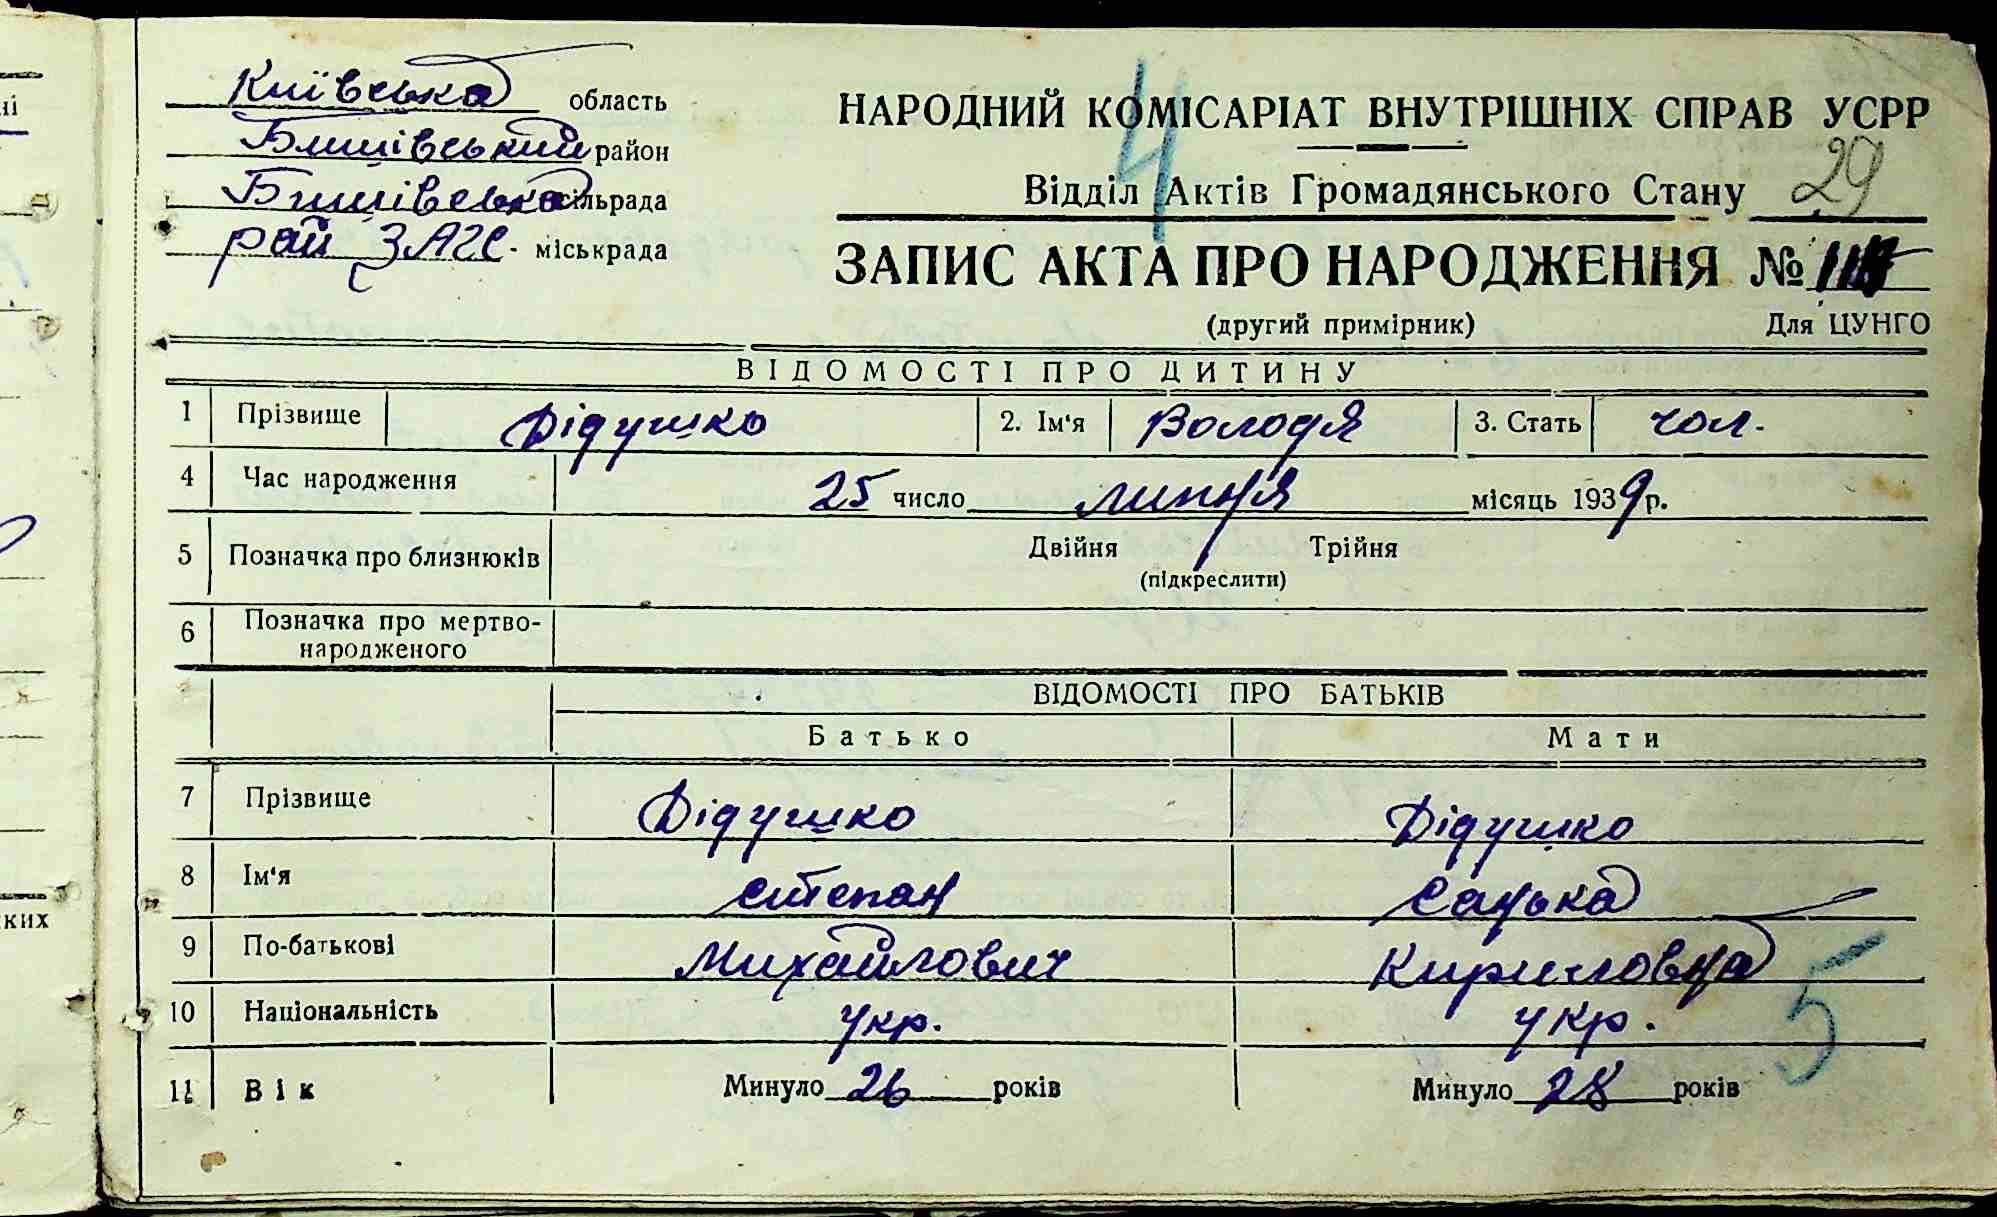 Київська область
Бишівський район
Бишівська сільрада
рай ЗАГС - міськрада
НАРОДНИЙ КОМІСАРІАТ ВНУТРІШНІХ СПРАВ УСРР
4
Відділ Актів Громадянського Стану 29
ЗАПИС АКТА ПРО НАРОДЖЕННЯ №
(другий примірник) Для ЦУНГО
ВІДОМОСТІ ПРО ДИТИНУ
1 Прізвище Дідушко 2. Ім'я Володя 3. Стать чол.
4 Час народження 25 число липня місяць 1939 р.
5 Позначка про близнюків Двійня Трійня
(підкреслити)
6 Позначка про мертво-
народженого
ВІДОМОСТІ ПРО БАТЬКІВ
Батько Мати
7 Прізвище Дідушко Дідушко
8 Ім'я Степан Санька
9 По-батькові Михайлович Кириловна
10 Національність укр. укр.
5
11 Вік Минуло 26 років Минуло 28 років
ких